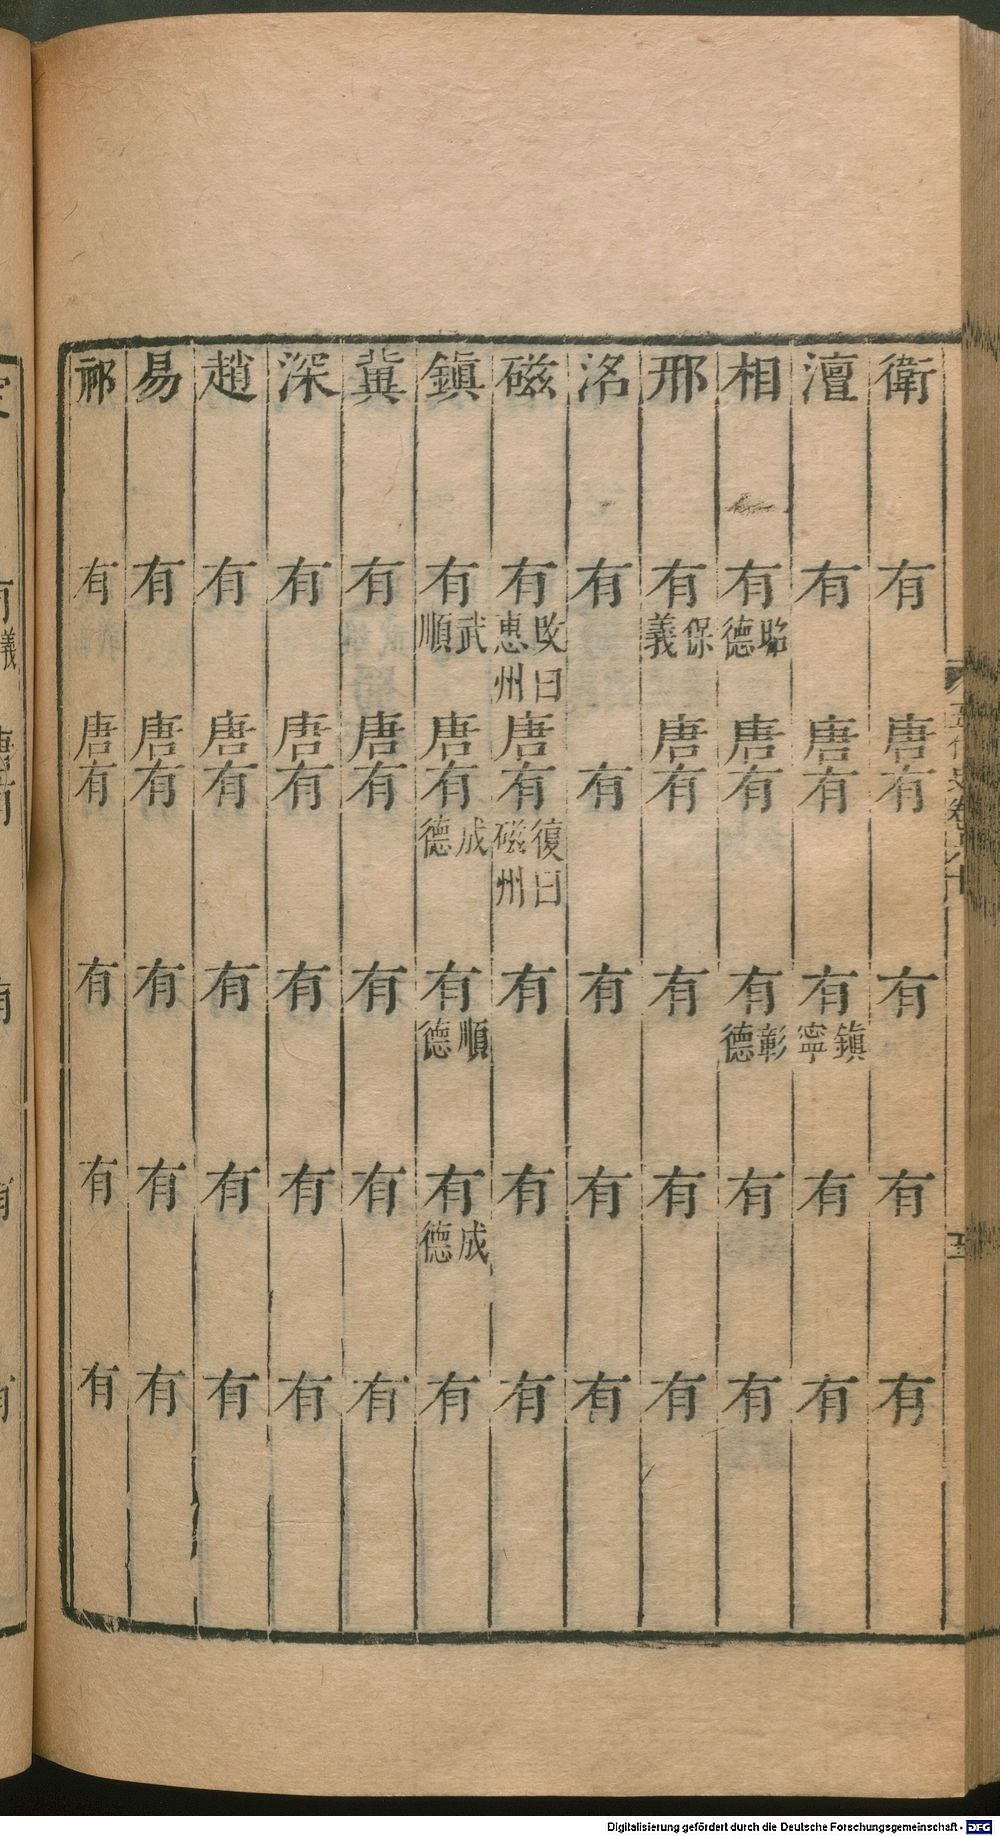 衛 有 唐 有 有 有 有
澶 有 唐 有 有鎮寧 有 有
相 有昭德 唐 有 有彰德 有 有
邢 有保義 唐 有 有 有 有
洺 有 有 有 有 有
磁 有改曰惠州 唐 有復曰磁州 有 有 有
鎮 有武順 唐 有成德 有順德 有成德 有
冀 有 唐 有 有 有 有
深 有 唐 有 有 有 有
趙 有 唐 有 有 有 有
易 有 唐 有 有 有 有
祁 有 唐 有 有 有 有
Digitalisierung gefördert durch die Deutsche Forschungsgemeinschaft - DFG